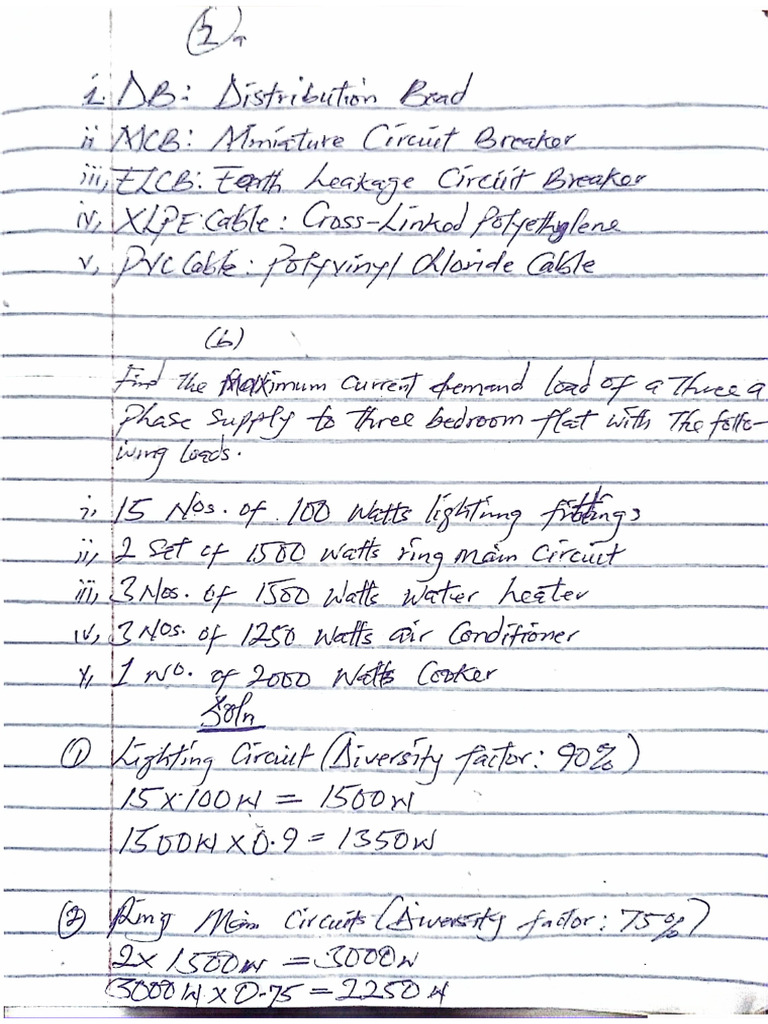 2
i. DB: Distribution Boad
ii MCB: Miniature Circuit Breaker
iii, ELCB: Earth Leakage Circuit Breaker
iv, XLPE Cable: Cross-Linked Polyethylene
v, PVC Cable: Polyvinyl Chloride Cable
(b)
Find the Maximum Current demand load of a Three a
phase supply to three bedroom flat with The follo-
wing loads.
i, 15 Nos. of 100 Watts lighting fittings
ii, 2 Set of 1500 Watts ring main circuit
iii, 3 Nos. of 1500 Watts water heater
iv, 3 Nos. of 1250 Watts air Conditioner
v, 1 No. of 2000 Watts Cooker
Soln
① Lighting Circuit (Diversity factor: 90%)
15 x 100W = 1500W
1500W x 0.9 = 1350W
② Ring Main Circuits (Diversity factor: 75%)
2 x 1500W = 3000W
3000W x 0.75 = 2250W